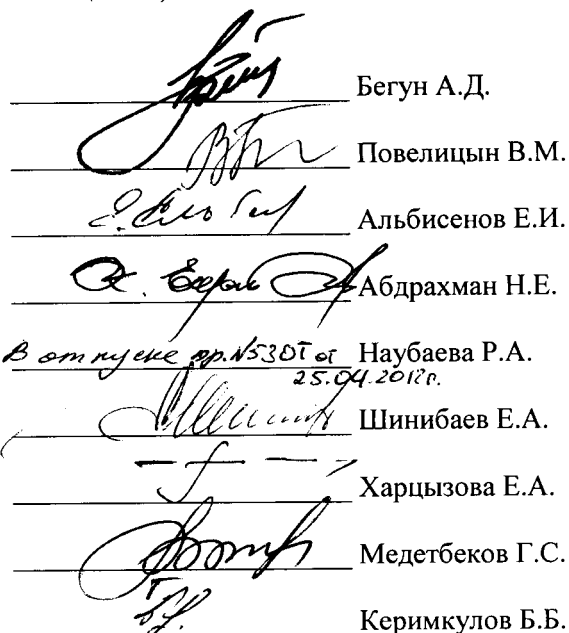 Бегун А.Д.
Повелицын В.М.
Альбисенов Е.И.
Абдрахман Н.Е.
В отпуске пр.N530Т от Наубаева Р.А.
25.04.2012г.
Шинибаев Е.А.
Харцызова Е.А.
Медетбеков Г.С.
Керимкулов Б.Б.